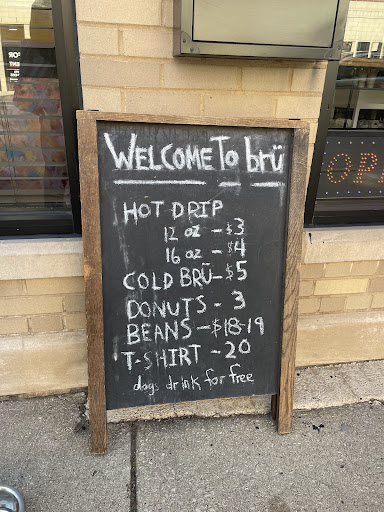 WELCOME To brü
HOT DRIP
12 oz - $3
16 oz - $4
COLD BRÜ - $5
DONUTS - 3
BEANS - $18-19
T-SHIRT - 20
dogs drink for free
OP